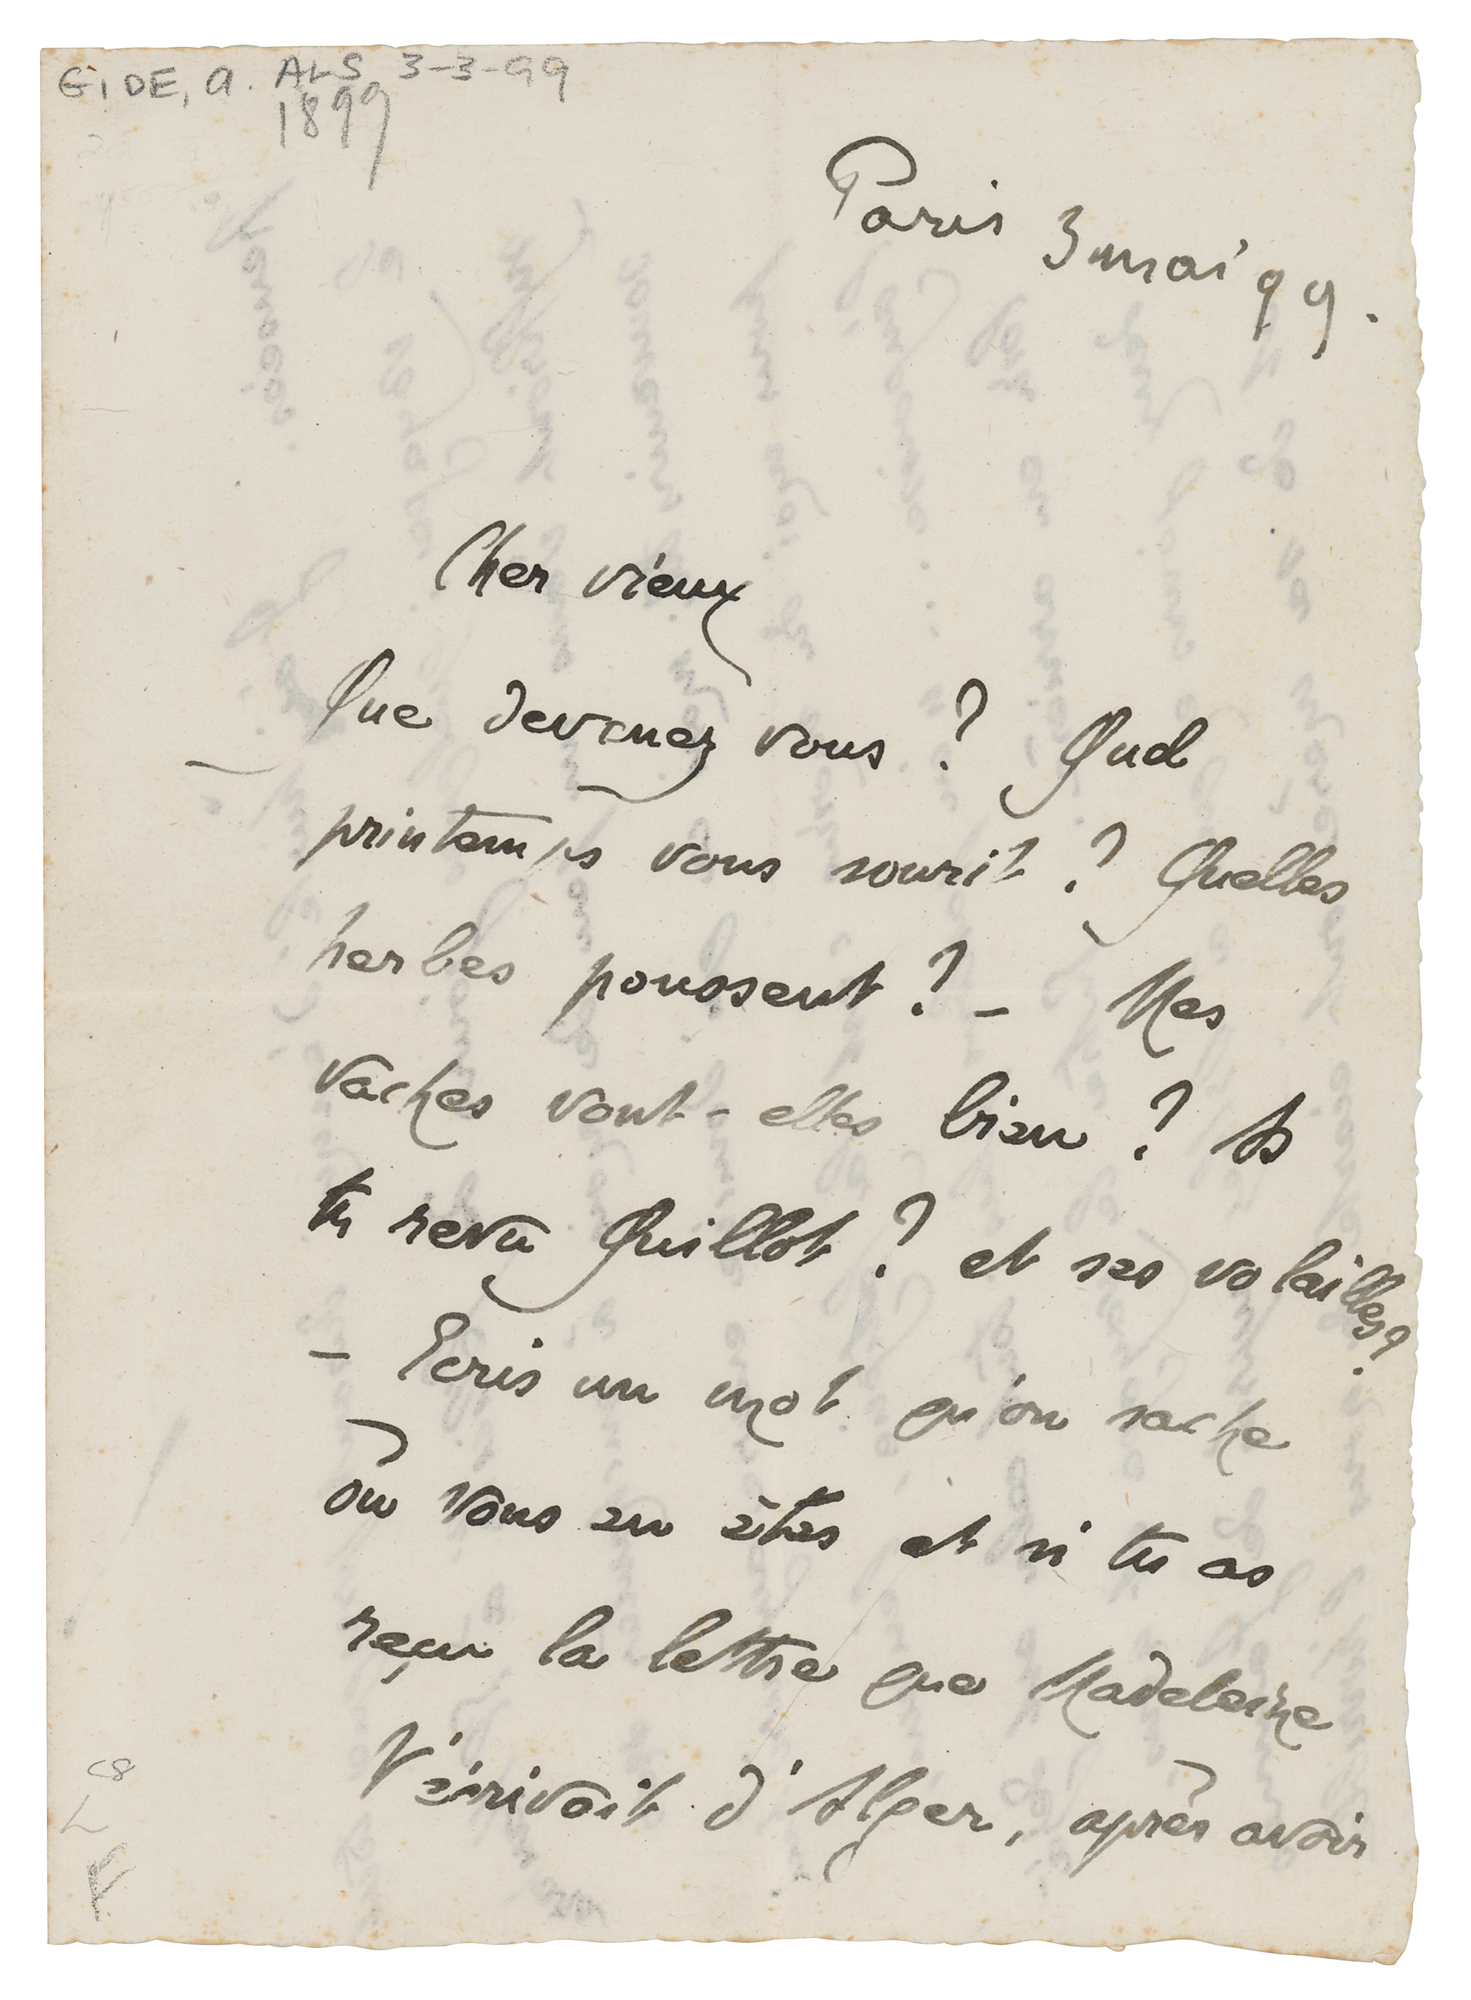 GIDE, A. ALS 3-3-99
1899
Paris 3 mai 99.
Cher vieux
Que devenez vous ? Quel
printemps vous sourit ? Quelles
herbes poussent ? – Mes
vaches vont-elles bien ? As
tu revu Quillot ? et ses volailles?
– Ecris un mot qu'on sache
où vous en êtes et si tu as
reçu la lettre que Madeleine
t'écrivait d'Alger, après avoir